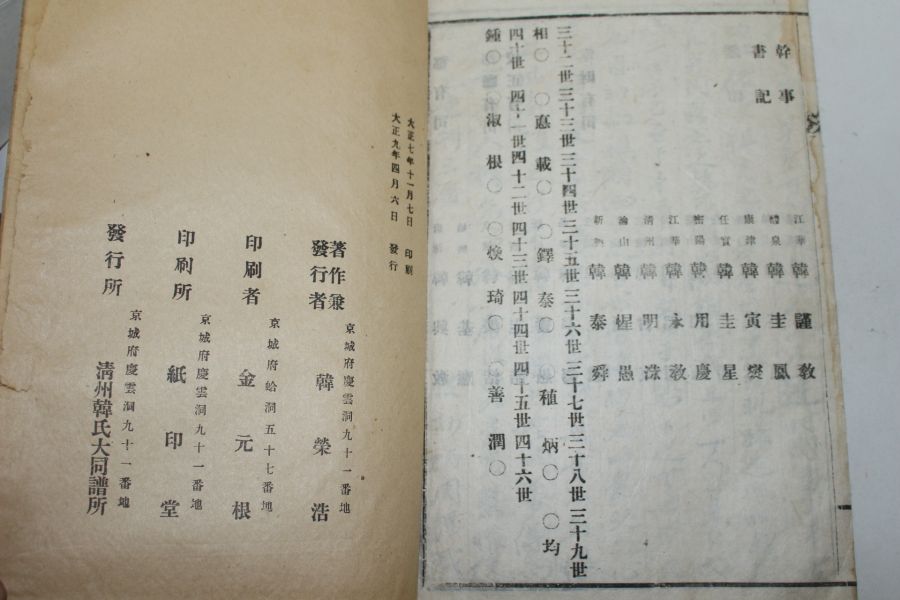 幹事
書記
江華 韓謹教
醴泉 韓圭鳳
康津 韓寅燮
任實 韓圭星
密陽 韓用慶
江華 韓永教
清州 韓明洙
渝山 韓樫愚
韓泰舜
三十二世三十三世三十四世三十五世三十六世三十七世三十八世三十九世
相〇 〇惪 載〇 〇鐸 泰〇 〇種 炳〇 〇均
四十世四十一世四十二世四十三世四十四世四十五世四十六世
鍾〇 〇淑 根〇 〇煥 琦〇 〇善 潤〇
大正七年十一月七日 印刷
大正九年四月六日 發行
著作兼發行者 京城府慶雲洞九十一番地 韓榮浩
印刷者 京城府蛤洞五十七番地 金元根
印刷所 京城府慶雲洞九十一番地 紙印堂
發行所 京城府慶雲洞九十一番地 清州韓氏大同譜所